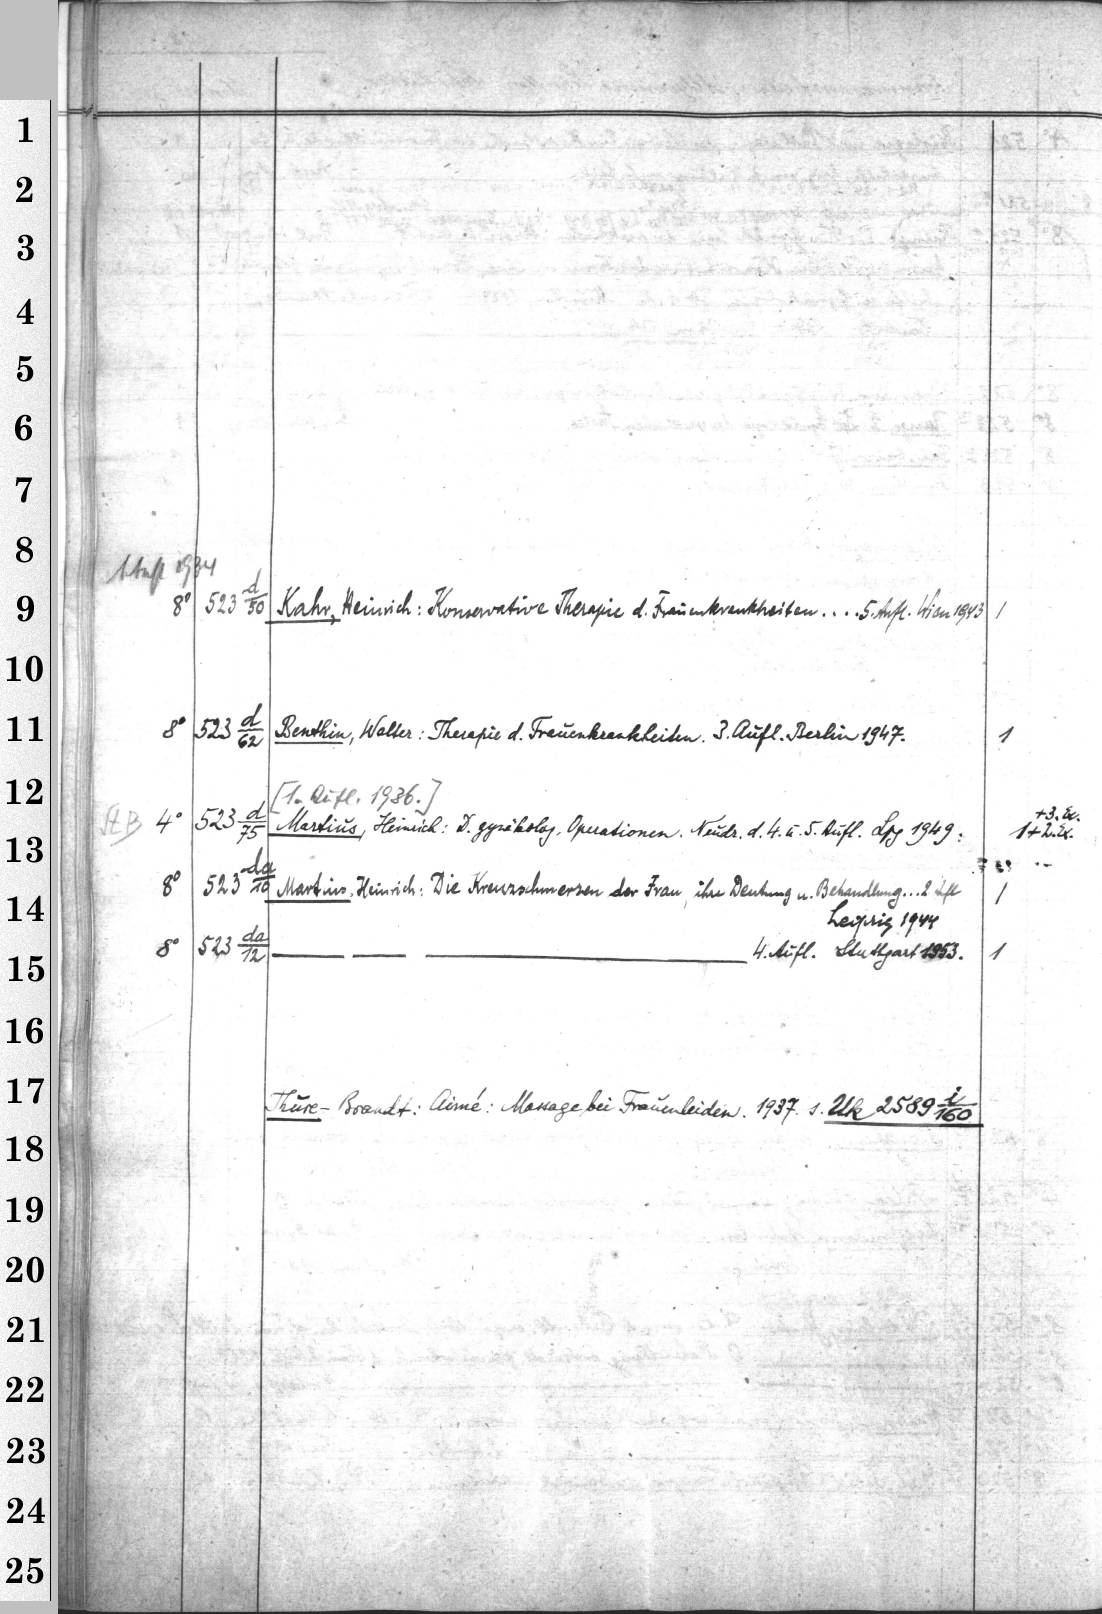 1
2
3
4
5
6
7
8
1. Aufl 1934
9
8° 523 d/50 Kahr, Heinrich: Konservative Therapie d. Frauenkrankheiten .... 5. Aufl. Wien 1943 1
10
11
8° 523 d/62 Benthin, Walter: Therapie d. Frauenkrankheiten. 3. Aufl. Berlin 1947. 1
12
[1. Aufl. 1936.]
+3. Ex.
St B 4° 523 d/75 Martius, Heinrich: D. gynäkolog. Operationen. Neudr. d. 4. u. 5. Aufl. Lpg 1949. 1+2. Ex.
13
8° 523 da/10 Martius, Heinrich: Die Kreuzschmerzen der Frau, ihre Deutung u. Behandlung... 2 Aufl 1
14
Leipzig 1944
8° 523 da/12 4. Aufl. Stuttgart 1953. 1
15
16
17
Thure-Brandt: Aimé: Massage bei Frauenleiden. 1937. s. Uk 2589 i/160
18
19
20
21
22
23
24
25